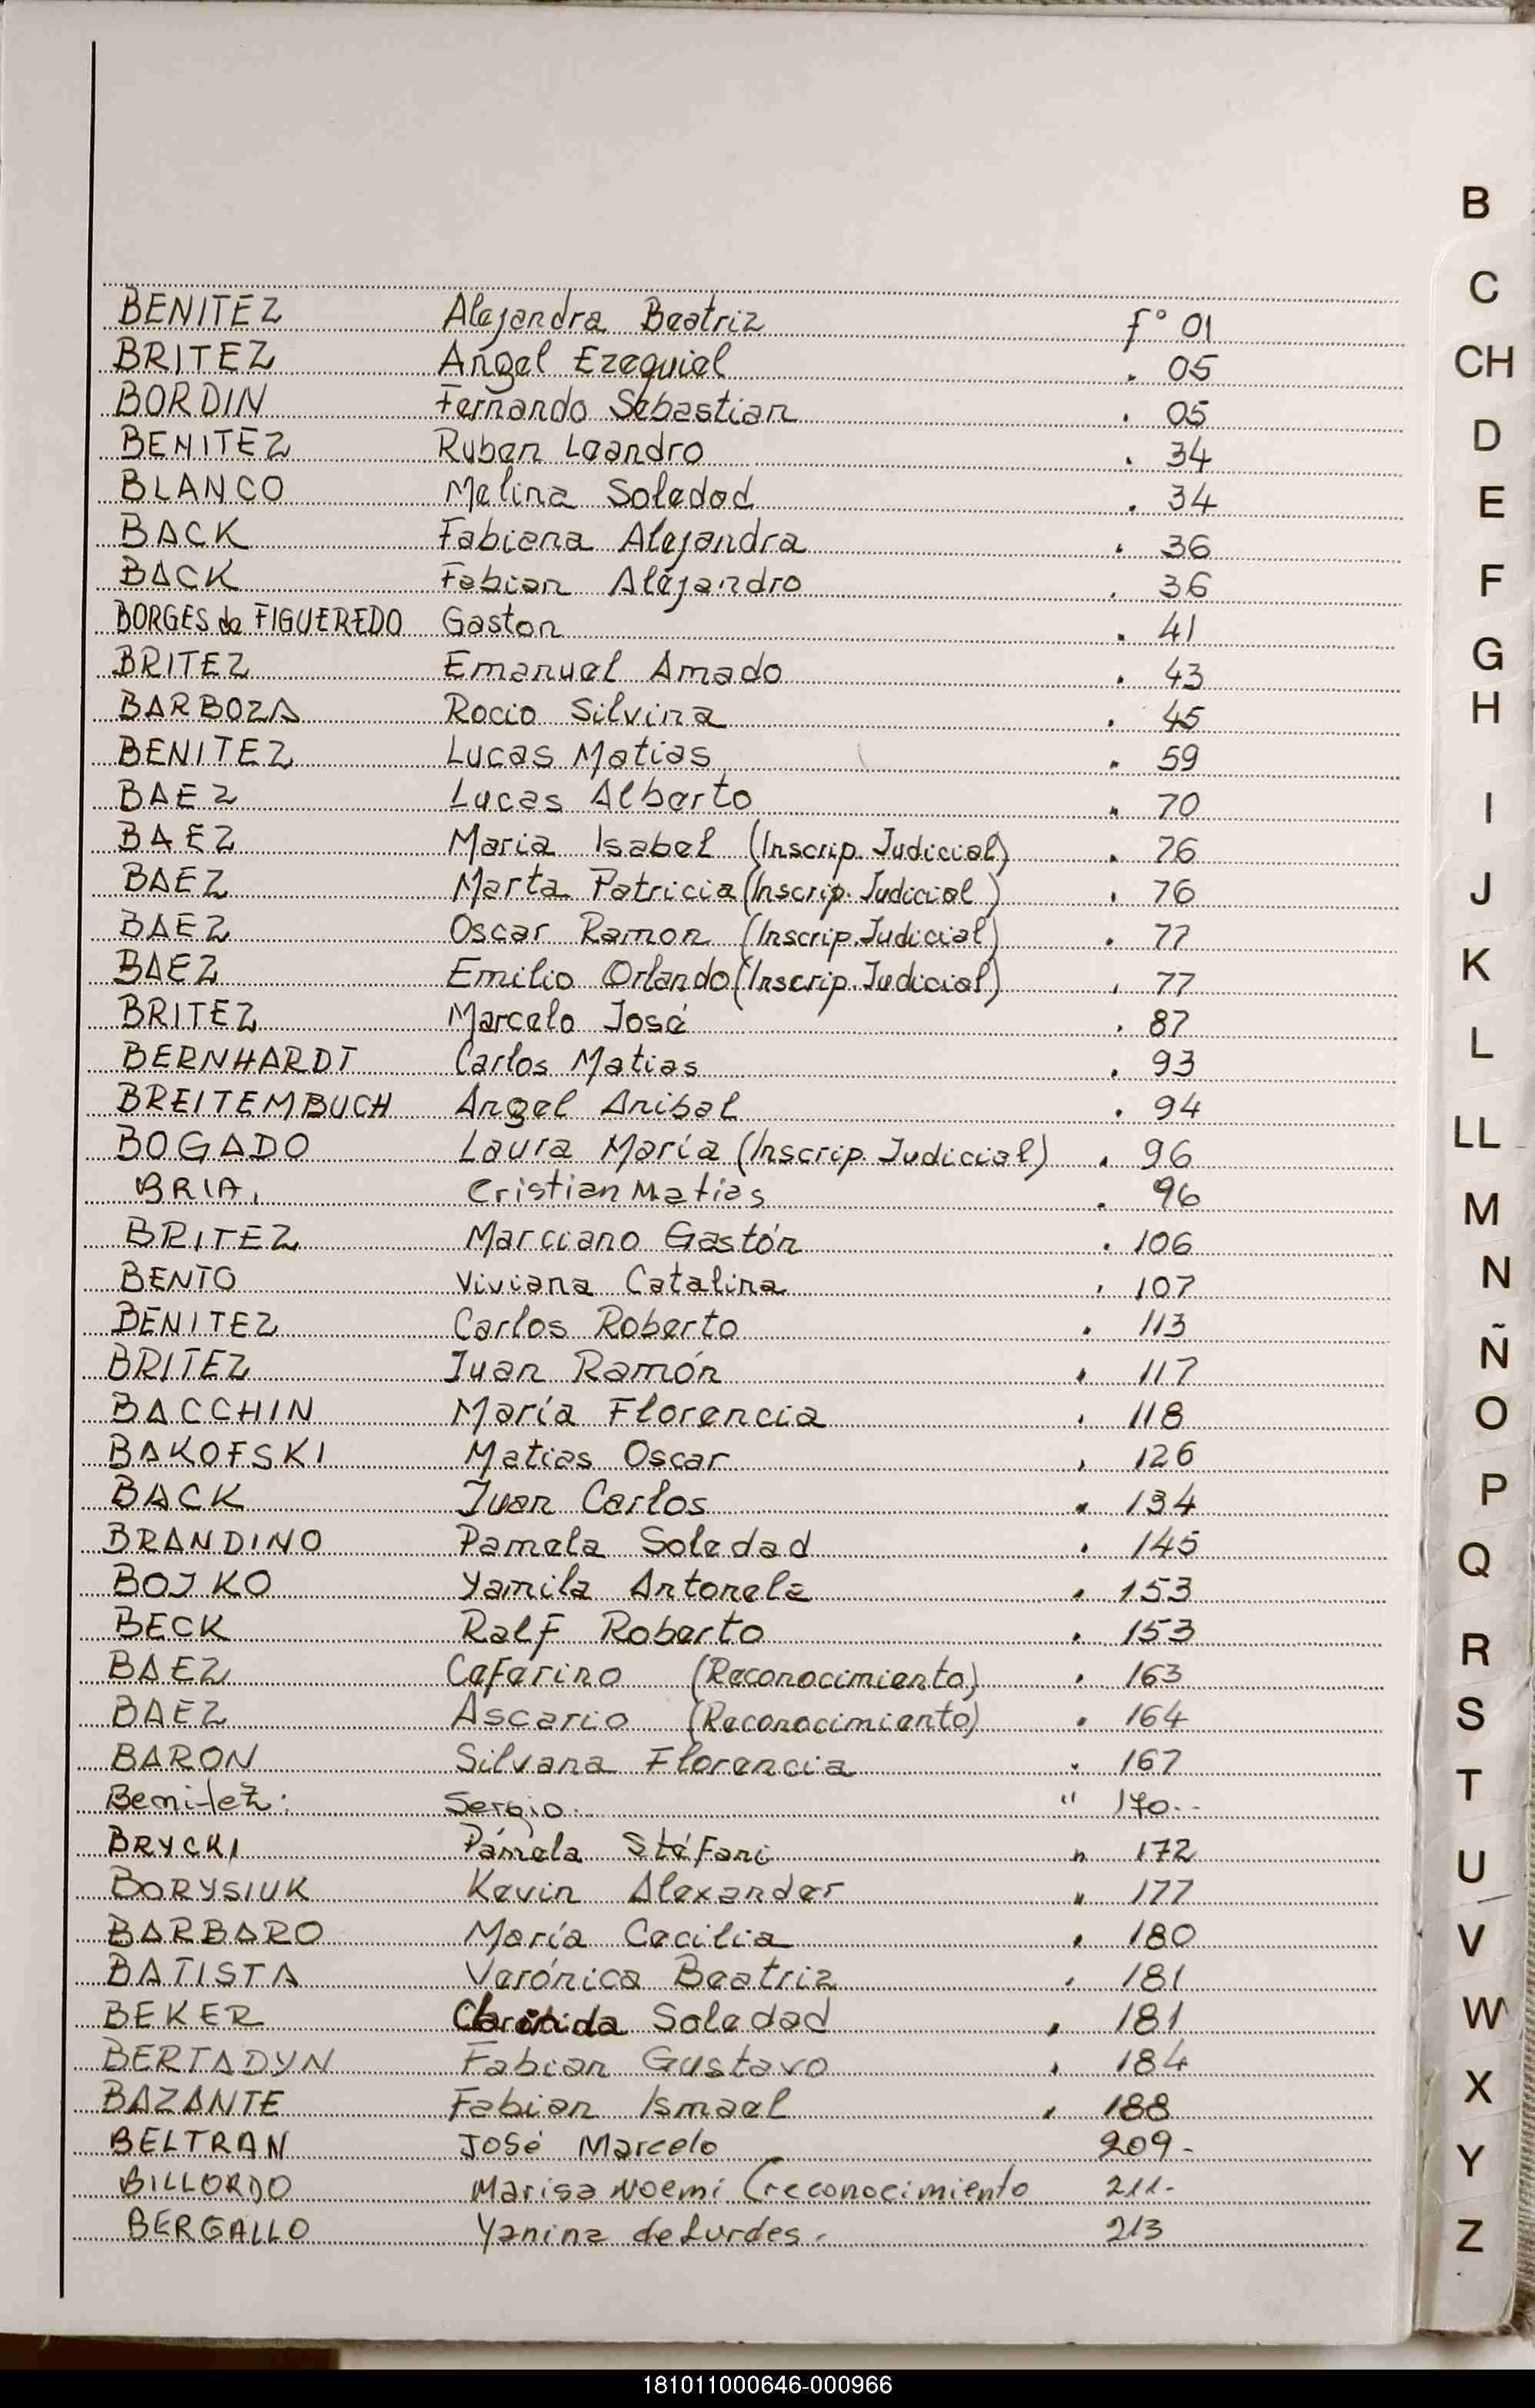 BENITEZ Alejandra Beatriz f° 01
BRITEZ Angel Ezequiel . 05
BORDIN Fernando Sebastian . 05
BENITEZ Ruben Leandro . 34
BLANCO Melina Soledad . 34
BACK Fabiana Alejandra . 36
BACK Fabian Alejandro . 36
BORGES de FIGUEREDO Gaston . 41
BRITEZ Emanuel Amado . 43
BARBOZA Rocio Silvina . 45
BENITEZ Lucas Matias " 59
BAEZ Lucas Alberto " 70
BAEZ Maria Isabel (Inscrip. Judicial) . 76
BAEZ Marta Patricia (Inscrip. Judicial) . 76
BAEZ Oscar Ramon (Inscrip. Judicial) . 77
BAEZ Emilio Orlando (Inscrip. Judicial) . 77
BRITEZ Marcelo José . 87
BERNHARDT Carlos Matias . 93
BREITEMBUCH Angel Anibal . 94
BOGADO Laura María (Inscrip. Judicial) . 96
BRIA, Cristian Matias . 96
BRITEZ Marciano Gastón . 106
BENTO Viviana Catalina . 107
BENITEZ Carlos Roberto . 113
BRITEZ Juan Ramón . 117
BACCHIN María Florencia . 118
BAKOFSKI Matias Oscar . 126
BACK Juan Carlos " 134
BRANDINO Pamela Soledad . 145
BOJKO Yamila Antonela . 153
BECK Ralf Roberto . 153
BAEZ Ceferino (Reconocimiento) . 163
BAEZ Ascario (Reconocimiento) . 164
BARON Silvana Florencia " 167
Benitez: Sergio. " 170.-
BRYCKI Pámela Stéfani " 172
BORYSIUK Kevin Alexander " 177
BARBARO María Cecilia . 180
BATISTA Verónica Beatriz . 181
BEKER Soledad . 181
BERTADYN Fabian Gustavo . 184
BAZANTE Fabian Ismael . 188
BELTRAN José Marcelo 209-
BILLORDO Marisa Noemi (reconocimiento 211-
BERGALLO Yanina de Lurdes. 213
B
C
CH
D
E
F
G
H
I
J
K
L
LL
M
N
Ñ
O
P
Q
R
S
T
U
V
W
X
Y
Z
181011000646-000966